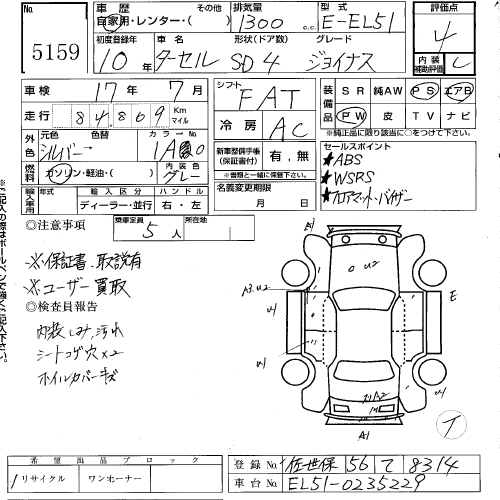 5159
車歴 自家用・レンター・( ) その他
排気量 1300 cc
型式 E-EL51
評価点 4
初度登録年月 10年
車名 ターセル
形状(ドア数) SD4
グレード ジョイナス
内装補助評価 C
車検 17年 7月
シフト FAT
装備品 SR 純AW PS エアB
走行 84,809 Km マイル
PW 皮 TV ナビ
※純正品に限り該当に○をつけて下さい。
外色 元色 シルバー 色替 カラーNo 1A0
冷房 AC
セールスポイント
★ABS
★WSRS
★フロアマット・バイザー
燃料 ガソリン・軽油・( ) 内装色 グレー
新車整備手帳(保証書付) 有・無
※書類と一緒に保管下さい。
輸入車用 輸入区分 ハンドル
ディーラー・並行 右・左
名義変更期限 月 日
◎注意事項
乗車定員 5人 所在地
※保証書、取説有
※ユーザー買取
◎検査員報告
内装しみ、汚れ
シートコゲ穴×2
ホイルカバーキズ
※ご記入の際はボールペンで強くご記入下さい。
A1
U2
A3.U2
U1
E
A2
A1
希望出品ブロック
リサイクル ワンオーナー
登録No. 佐世保 56 て 8314
車台No. EL51-0235229